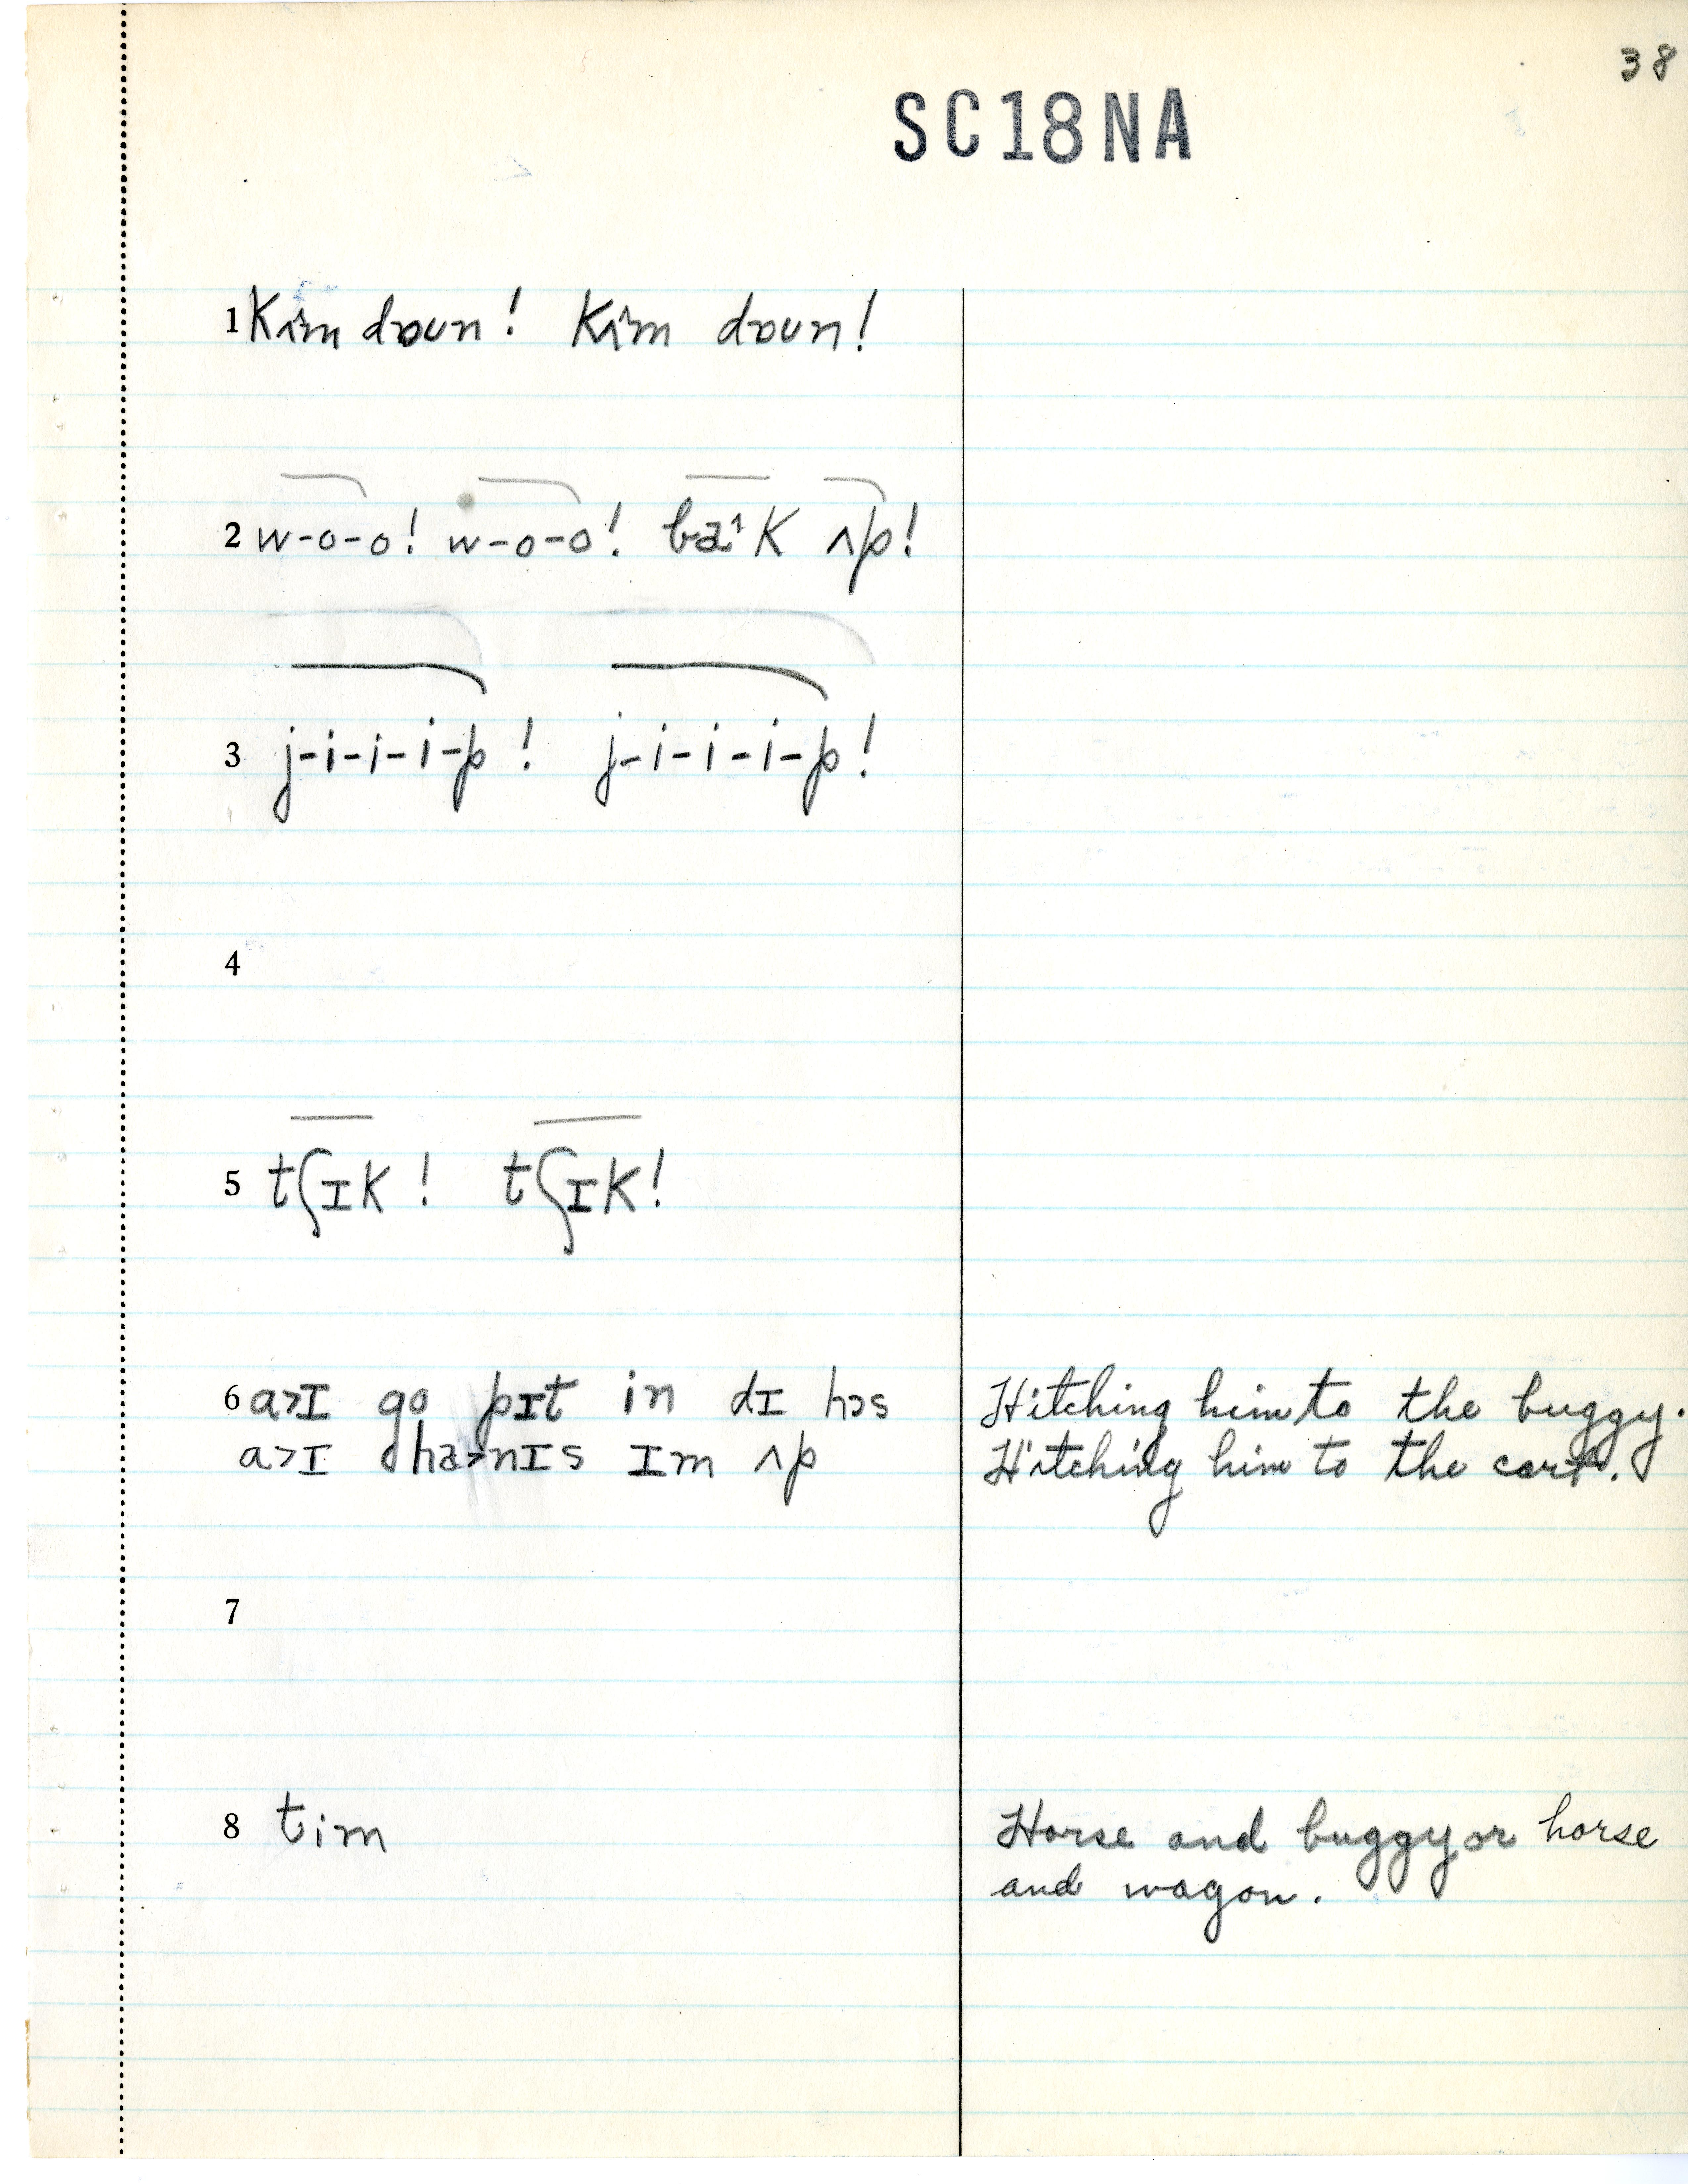 38
SC18NA
1 kɪ^m dɒun! kɪ^m dɒun!
2 w-o-o! w-o-o! ba˔k ʌp!
3 j-i-i-i-p! j-i-i-i-p!
4
5 tʃɪk! tʃɪk!
6 a>ɪ go pɪt in dɪ hɔs Hitching him to the buggy.
a>ɪ ha>nɪs ɪm ʌp Hitching him to the cart.
7
8 tim Horse and buggy or horse
and wagon.